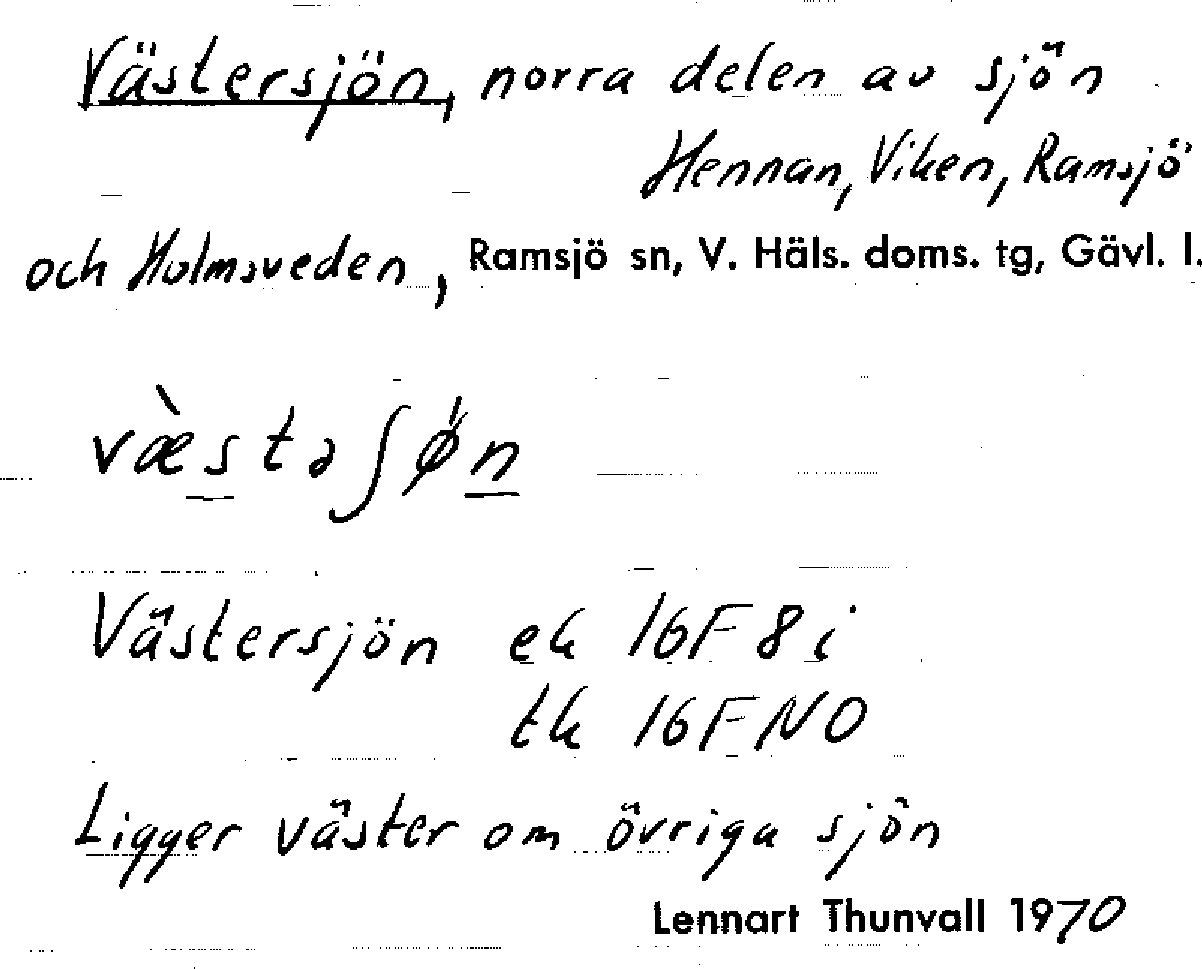 Västersjön, norra delen av sjön
Hennan, Viken, Ramsjö
och Holmsveden, Ramsjö sn, V. Häls. doms. tg, Gävl. l.
væ̀stəʃøn
Västersjön ek 16F8i
tk 16FNO
Ligger väster om övriga sjön
Lennart Thunvall 1970